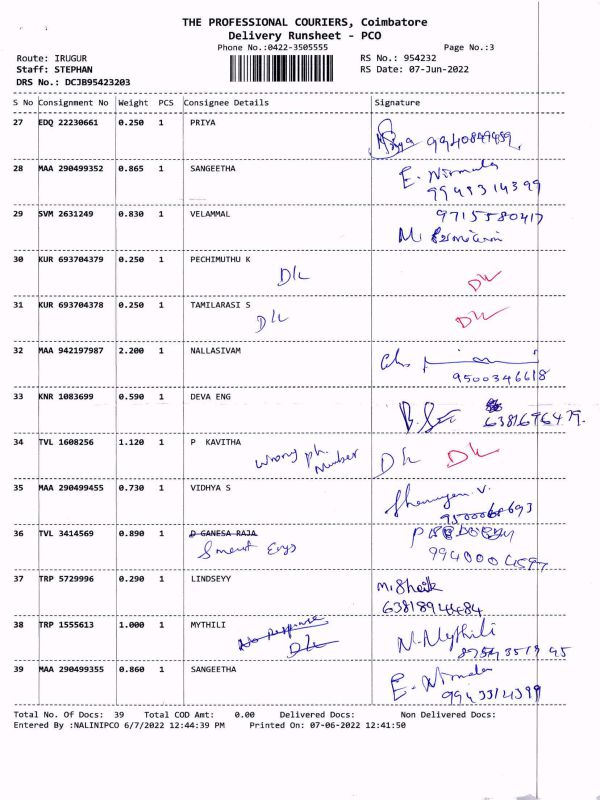 THE PROFESSIONAL COURIERS, Coimbatore
Delivery Runsheet - PCO
Phone No.:0422-3505555
Page No.:3
Route: IRUGUR
RS No.: 954232
Staff: STEPHAN
RS Date: 07-Jun-2022
DRS No.: DCJB95423203
S No Consignment No Weight PCS Consignee Details Signature
27 EDQ 22230661 0.250 1 PRIYA
28 MAA 290499352 0.865 1 SANGEETHA E. Nirmala
29 SVM 2631249 0.830 1 VELAMMAL 9715580417
M.
30 KUR 693704379 0.250 1 PECHIMUTHU K
D/L D/L
31 KUR 693704378 0.250 1 TAMILARASI S
D/L D/L
32 MAA 942197987 2.200 1 NALLASIVAM
9500346618
33 KNR 1083699 0.590 1 DEVA ENG
6381696479.
34 TVL 1608256 1.120 1 P KAVITHA
Wrong ph. Number D/L D/L
35 MAA 290499455 0.730 1 VIDHYA S
36 TVL 3414569 0.890 1 D GANESA RAJA
Smart Engs
37 TRP 5729996 0.290 1 LINDSEYY
M. Shaik
38 TRP 1555613 1.000 1 MYTHILI
No Response N. Mythili
D/L
39 MAA 290499355 0.860 1 SANGEETHA E. Nirmala
Total No. Of Docs: 39 Total COD Amt: 0.00 Delivered Docs: Non Delivered Docs:
Entered By :NALINIPCO 6/7/2022 12:44:39 PM Printed On: 07-06-2022 12:41:50